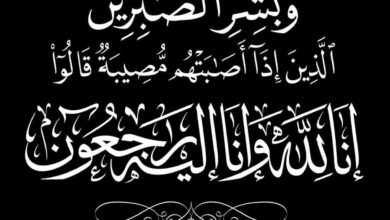 وَبَشِّرِ الصَّابِرِينَ
الَّذِينَ إِذَآ أَصَٰبَتْهُم مُّصِيبَةٌ قَالُوٓا۟
إِنَّا لِلَّٰهِ وَإِنَّآ إِلَيْهِ رَٰجِعُونَ